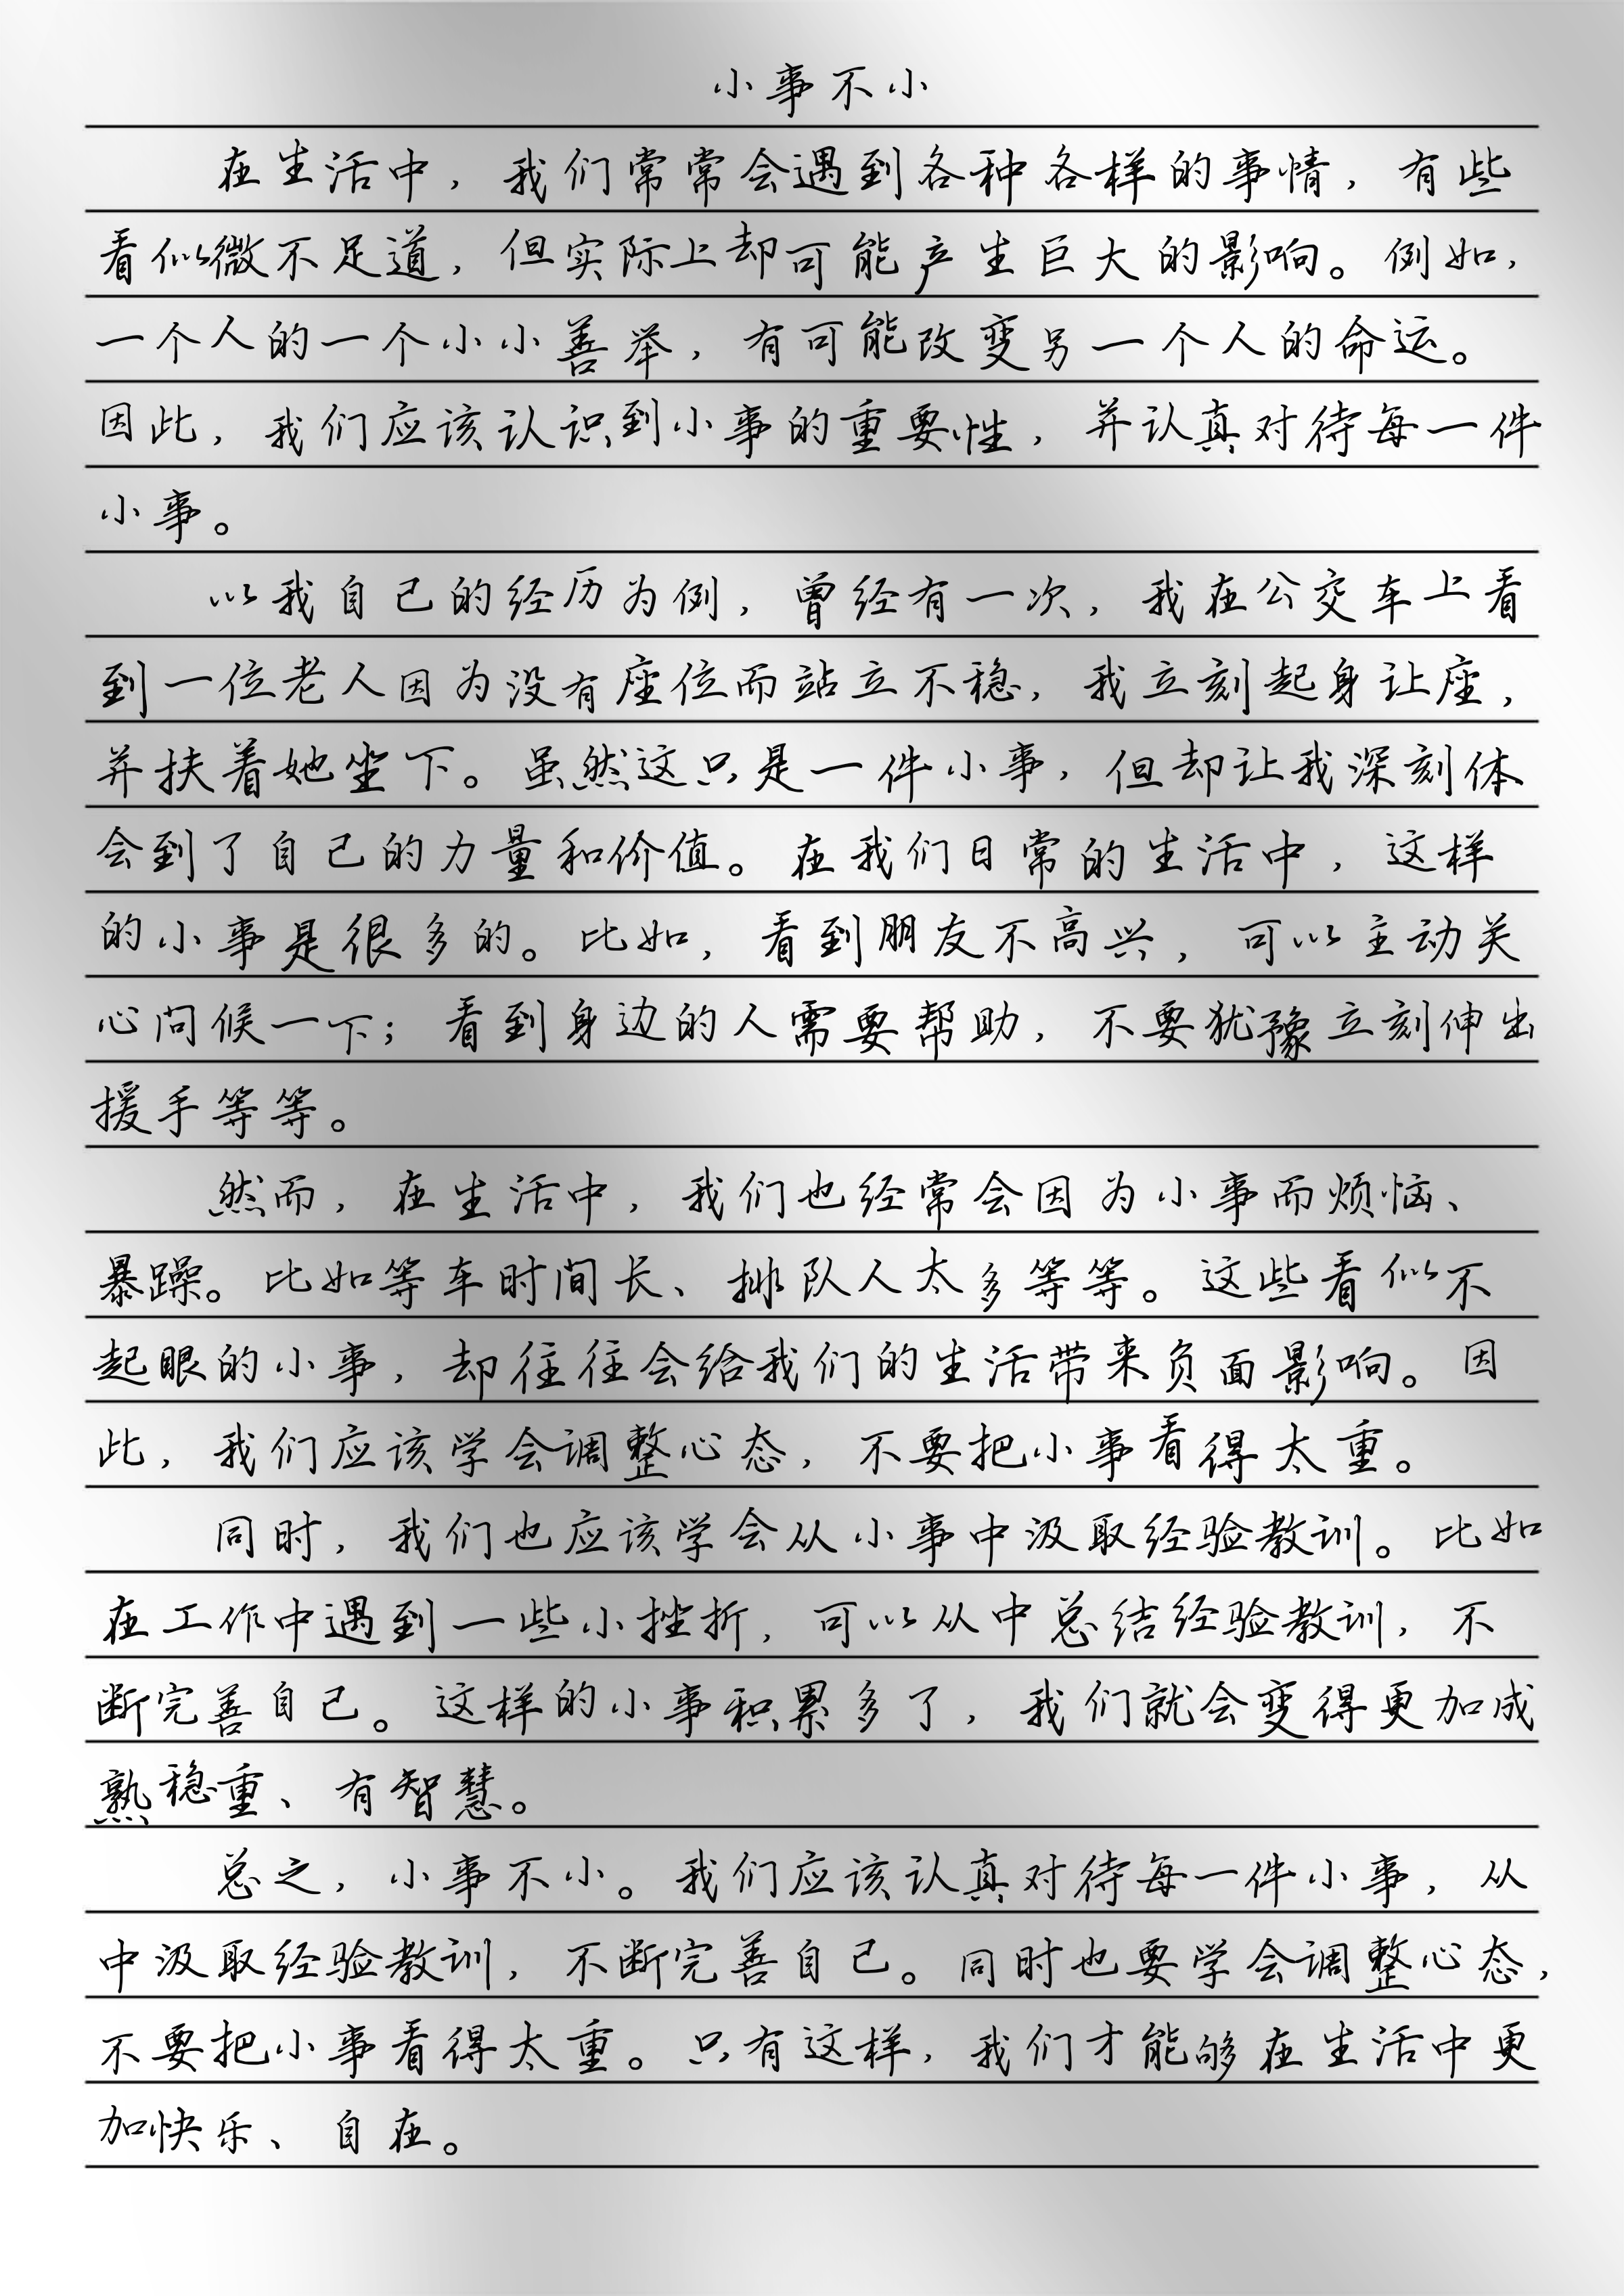 小事不小
在生活中，我们常常会遇到各种各样的事情，有些
看似微不足道，但实际上却可能产生巨大的影响。例如，
一个人的一个小小善举，有可能改变另一个人的命运。
因此，我们应该认识到小事的重要性，并认真对待每一件
小事。
以我自己的经历为例，曾经有一次，我在公交车上看
到一位老人因为没有座位而站立不稳，我立刻起身让座，
并扶着她坐下。虽然这只是一件小事，但却让我深刻体
会到了自己的力量和价值。在我们日常的生活中，这样
的小事是很多的。比如，看到朋友不高兴，可以主动关
心问候一下；看到身边的人需要帮助，不要犹豫立刻伸出
援手等等。
然而，在生活中，我们也经常会因为小事而烦恼、
暴躁。比如等车时间长、排队人太多等等。这些看似不
起眼的小事，却往往会给我们的生活带来负面影响。因
此，我们应该学会调整心态，不要把小事看得太重。
同时，我们也应该学会从小事中汲取经验教训。比如
在工作中遇到一些小挫折，可以从中总结经验教训，不
断完善自己。这样的小事积累多了，我们就会变得更加成
熟稳重、有智慧。
总之，小事不小。我们应该认真对待每一件小事，从
中汲取经验教训，不断完善自己。同时也要学会调整心态，
不要把小事看得太重。只有这样，我们才能够在生活中更
加快乐、自在。